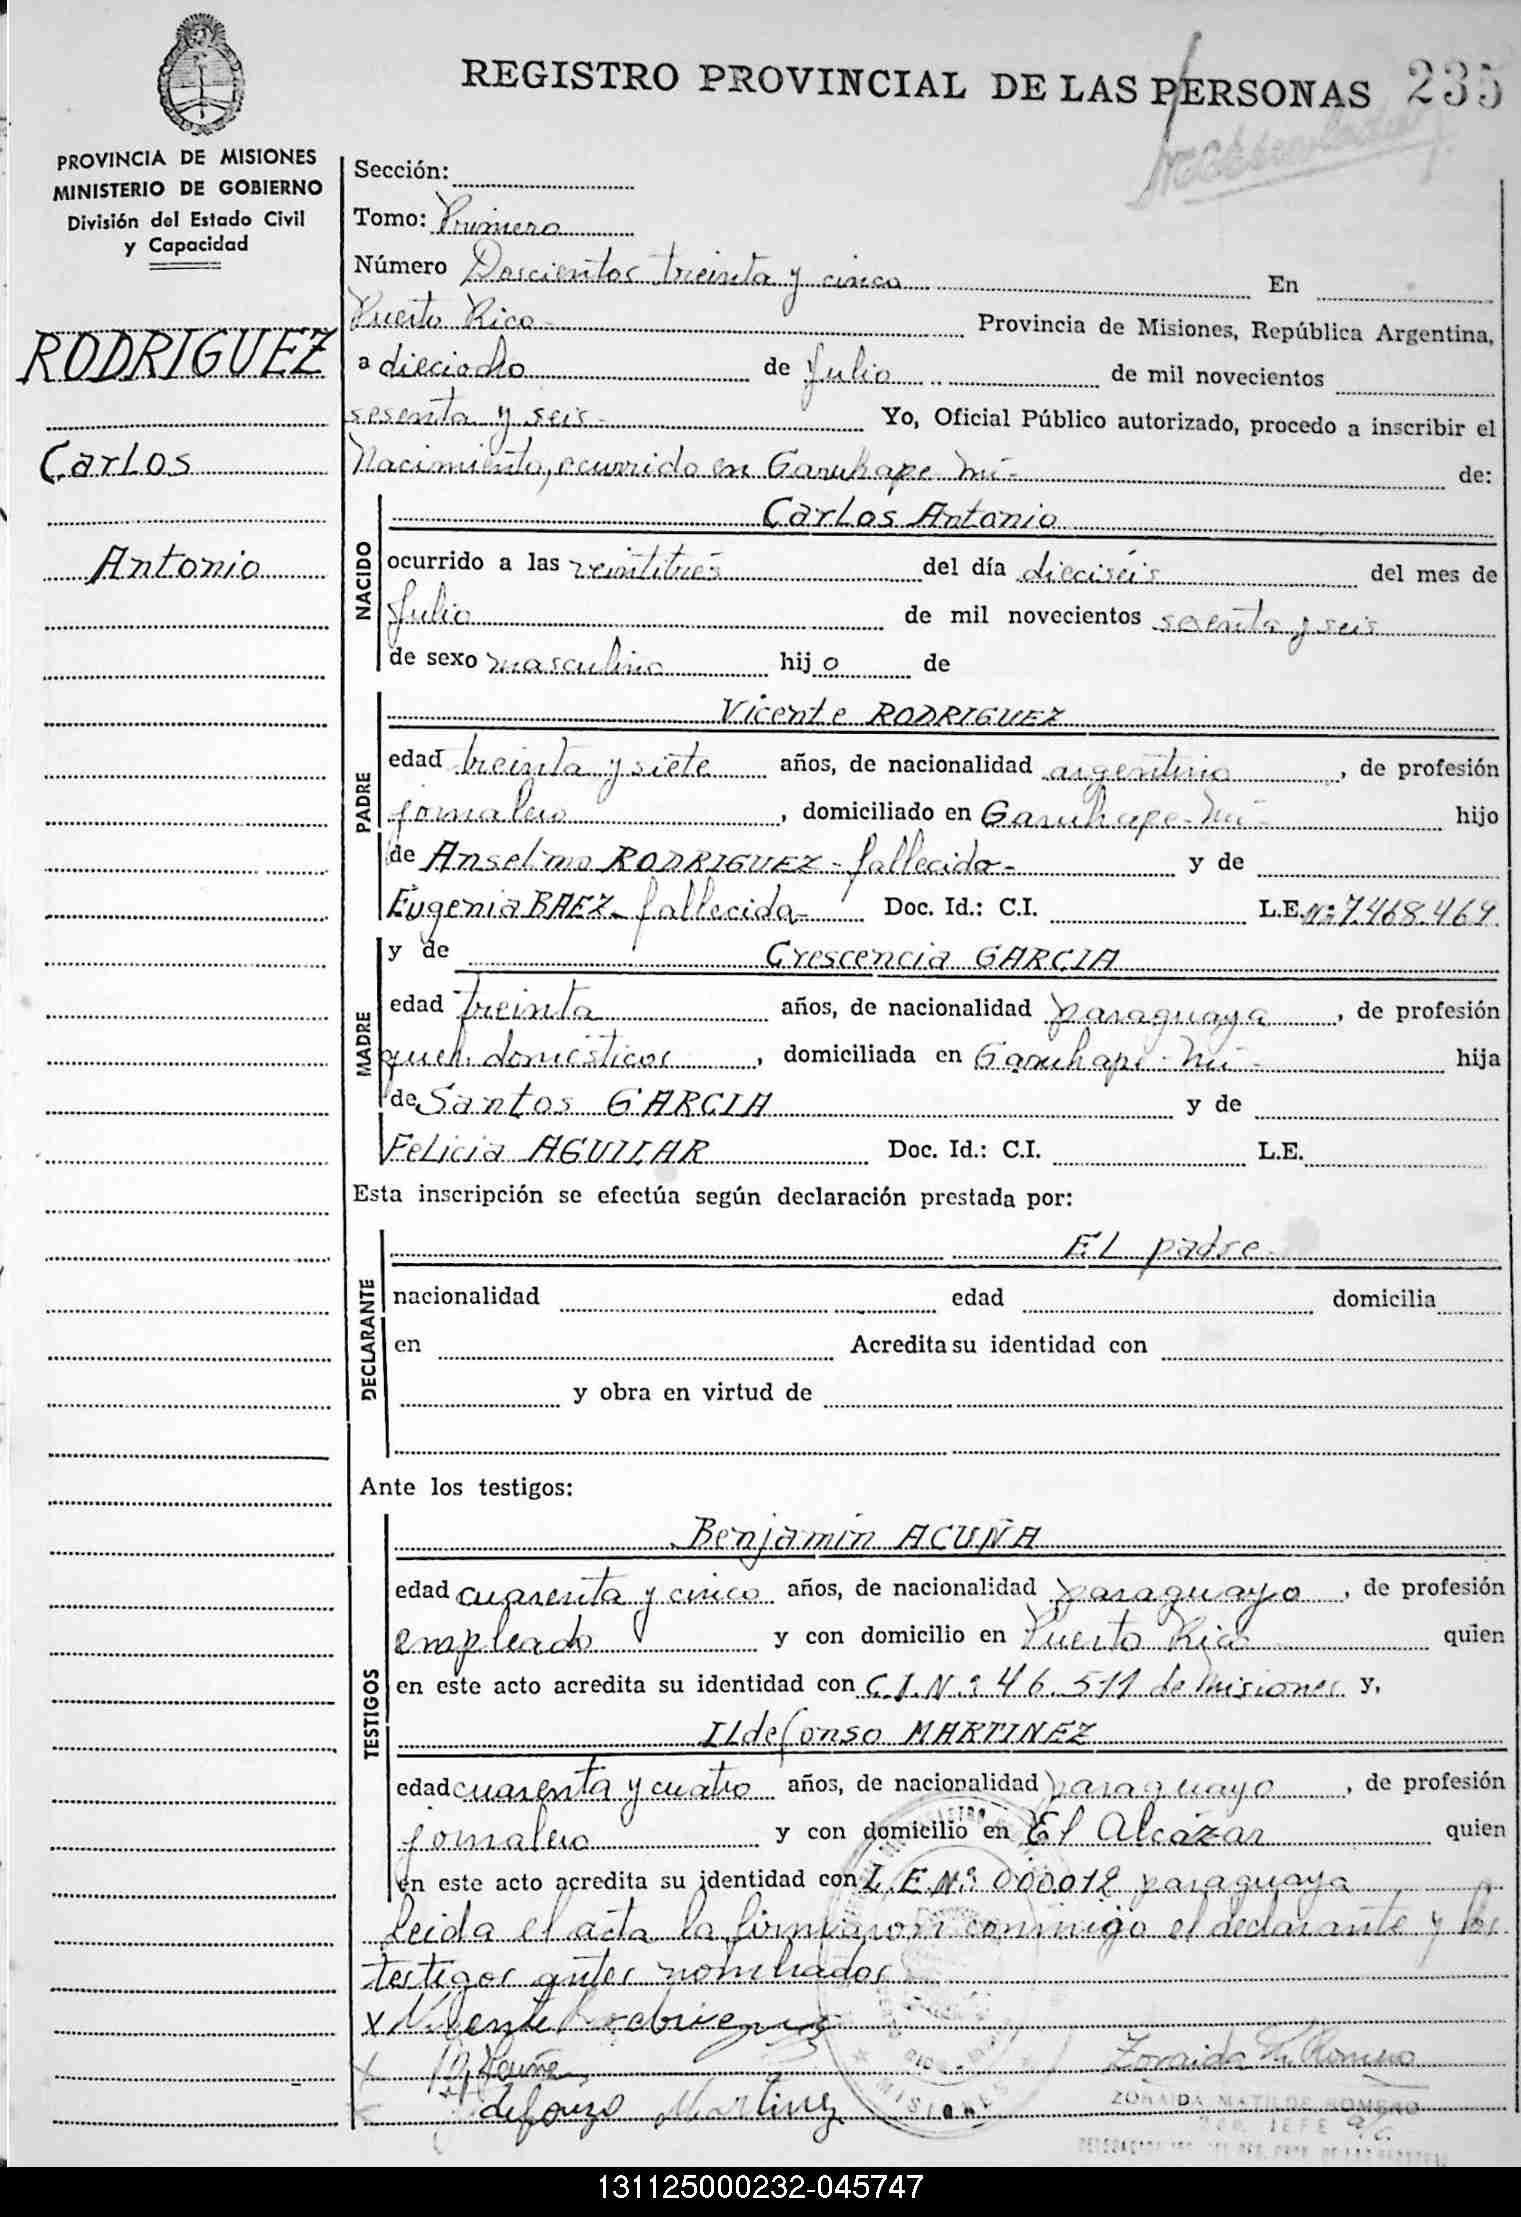 REGISTRO PROVINCIAL DE LAS PERSONAS 235
PROVINCIA DE MISIONES
MINISTERIO DE GOBIERNO
División del Estado Civil
y Capacidad
RODRIGUEZ
Carlos
Antonio
Sección:
Tomo: Primero
Número Doscientos treinta y cinco En
Puerto Rico Provincia de Misiones, República Argentina,
a dieciocho de Julio de mil novecientos
sesenta y seis- Yo, Oficial Público autorizado, procedo a inscribir el
Nacimiento, ocurrido en Garuhape-mí- de:
NACIDO
Carlos Antonio
ocurrido a las veintitrés del día dieciséis del mes de
Julio de mil novecientos sesenta y seis
de sexo masculino hijo de
PADRE
Vicente RODRIGUEZ
edad treinta y siete años, de nacionalidad argentino, de profesión
jornalero, domiciliado en Garuhape-mí- hijo
de Anselmo RODRIGUEZ-fallecido- y de
Eugenia BAEZ-fallecida- Doc. Id.: C.I. L.E. Nº 7.468.469
MADRE
y de Crescencia GARCIA
edad treinta años, de nacionalidad paraguaya, de profesión
queh. domésticos, domiciliada en Garuhape-mí- hija
de Santos GARCIA y de
Felicia AGUILAR Doc. Id.: C.I. L.E.
Esta inscripción se efectúa según declaración prestada por:
DECLARANTE
El padre
nacionalidad edad domicilia
en Acredita su identidad con
y obra en virtud de
Ante los testigos:
TESTIGOS
Benjamín ACUÑA
edad cuarenta y cinco años, de nacionalidad paraguayo, de profesión
empleado y con domicilio en Puerto Rico quien
en este acto acredita su identidad con C.I.Nº 46.511 de Misiones y,
ILdefonso MARTINEZ
edad cuarenta y cuatro años, de nacionalidad paraguayo, de profesión
jornalero y con domicilio en El Alcázar quien
en este acto acredita su identidad con L.E.Nº 000.012 paraguaya
Leida el acta la firmaron conmigo el declarante y los
testigos antes nombrados
x Vicente Rodriguez
x B Acuña
x Ildefonzo Martinez
Zoraida M. Romero
ZORAIDA MATILDE ROMERO
JEFE a/c.
MISIONES
131125000232-045747